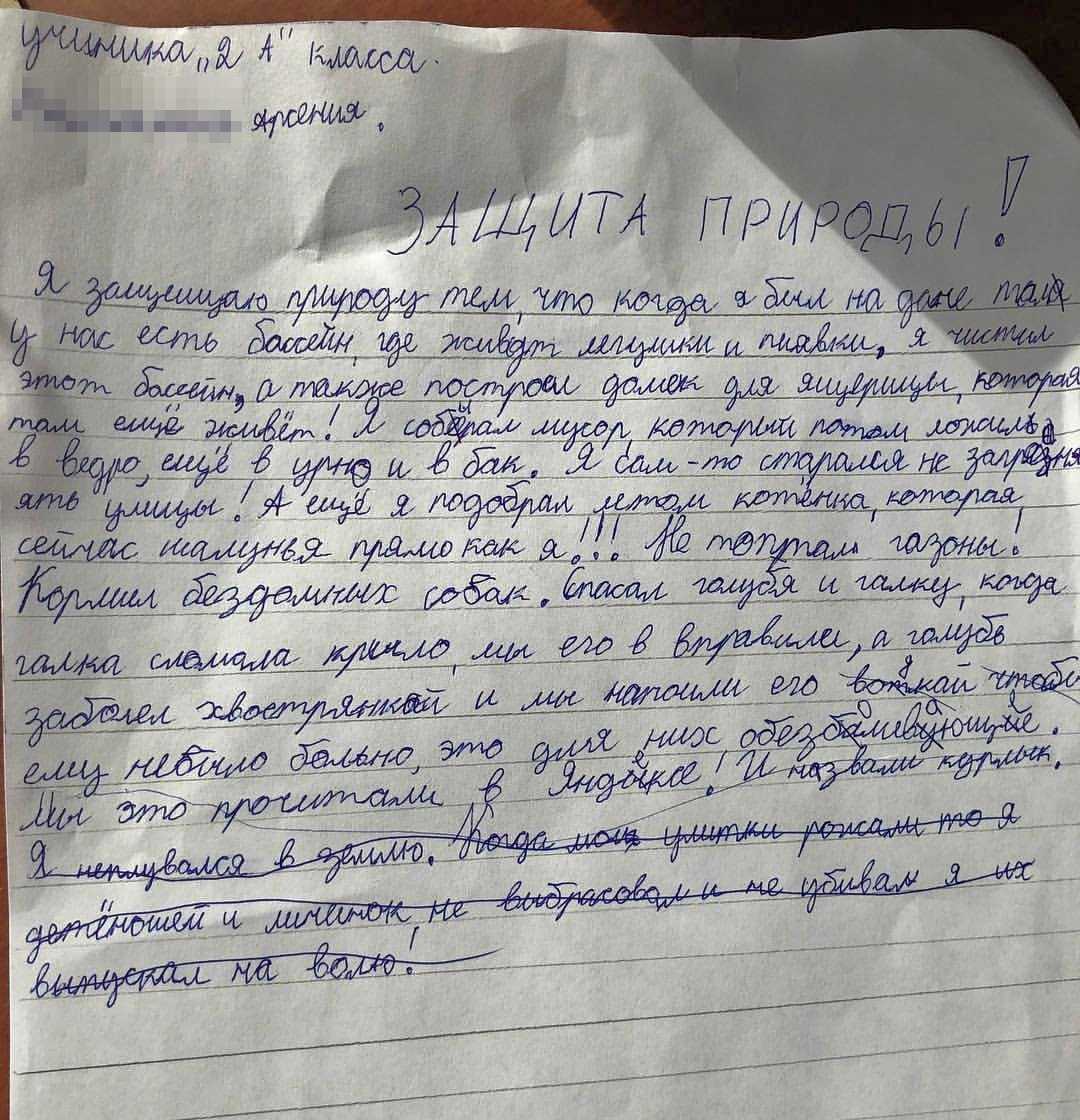 учиника „2 А" класса.
Арсения.
ЗАЩИТА ПРИРОДЫ!
Я защищаю природу тем, что когда я был на даче там
у нас есть бассейн, где живут лягушки и пиявки, я чистил
этот бассейн, а также построил домек для ящерицы, которая
там ещё живёт! Я собирал мусор, который потом ложил
в ведро, ещё в урну и в бак. Я сам-то старался не загрязня
ять улицы! А ещё я подобрал летом котёнка, которая
сейчас шалунья прямо как я!!! Не топтал газоны!
Кормил бездомных собак. Спасал голубя и галку, когда
галка сломала крыло, мы его в вправили, а голубь
заболел хвострянкой и мы напоили его водкай чтобы
ему небыло больно, это для них обезбаливующие.
Мы это прочитали в Яндексе! И назвали курлык.
Я неплувался в землю. Когда мои улитки рожали то я
детёношей и личинок, не выбрасовал и не убивал я их
выпускал на волю!